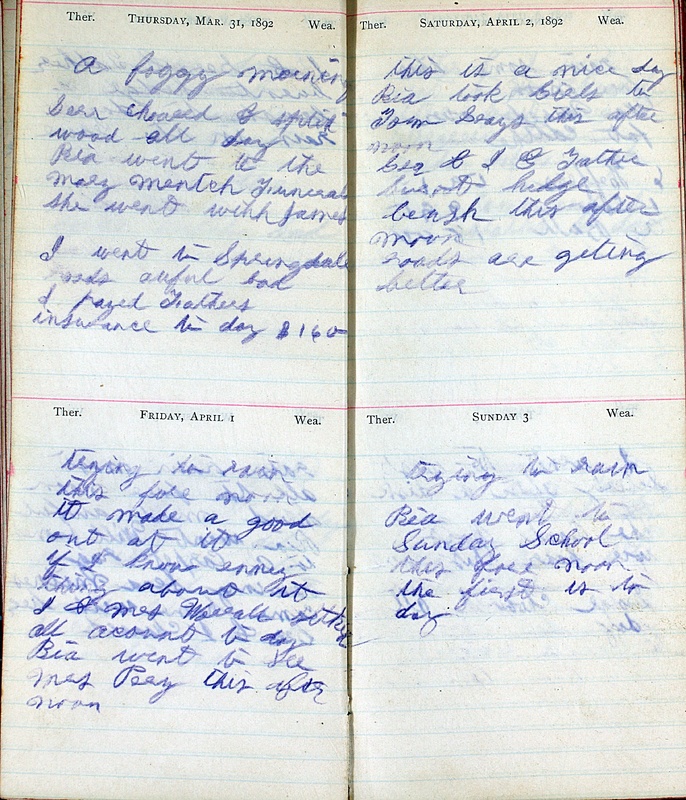 Ther. THURSDAY, MAR. 31, 1892 Wea.
A foggy morning
choased & split
wood all day
Ria went to the
mary mentch Funeral
she went with James
I went to Springdale
roads awful bad
I payed Fathers
insurance to day $1 60
Ther. FRIDAY, APRIL 1 Wea.
trying to rain
this fore noon
it made a good
out at it
if I know enney
thing about it
I & mrs
all acount to day
Ria went to see
mrs Peey this after
noon
Ther. SATURDAY, APRIL 2, 1892 Wea.
this is a nice day
Ria took to
Tom Grays this after
noon
Geo & I & Father
burnt hedge
brush this after
moon
roads are geting
better
Ther. SUNDAY 3 Wea.
trying to rain
Ria went to
Sunday School
this fore noon
the first is to
day